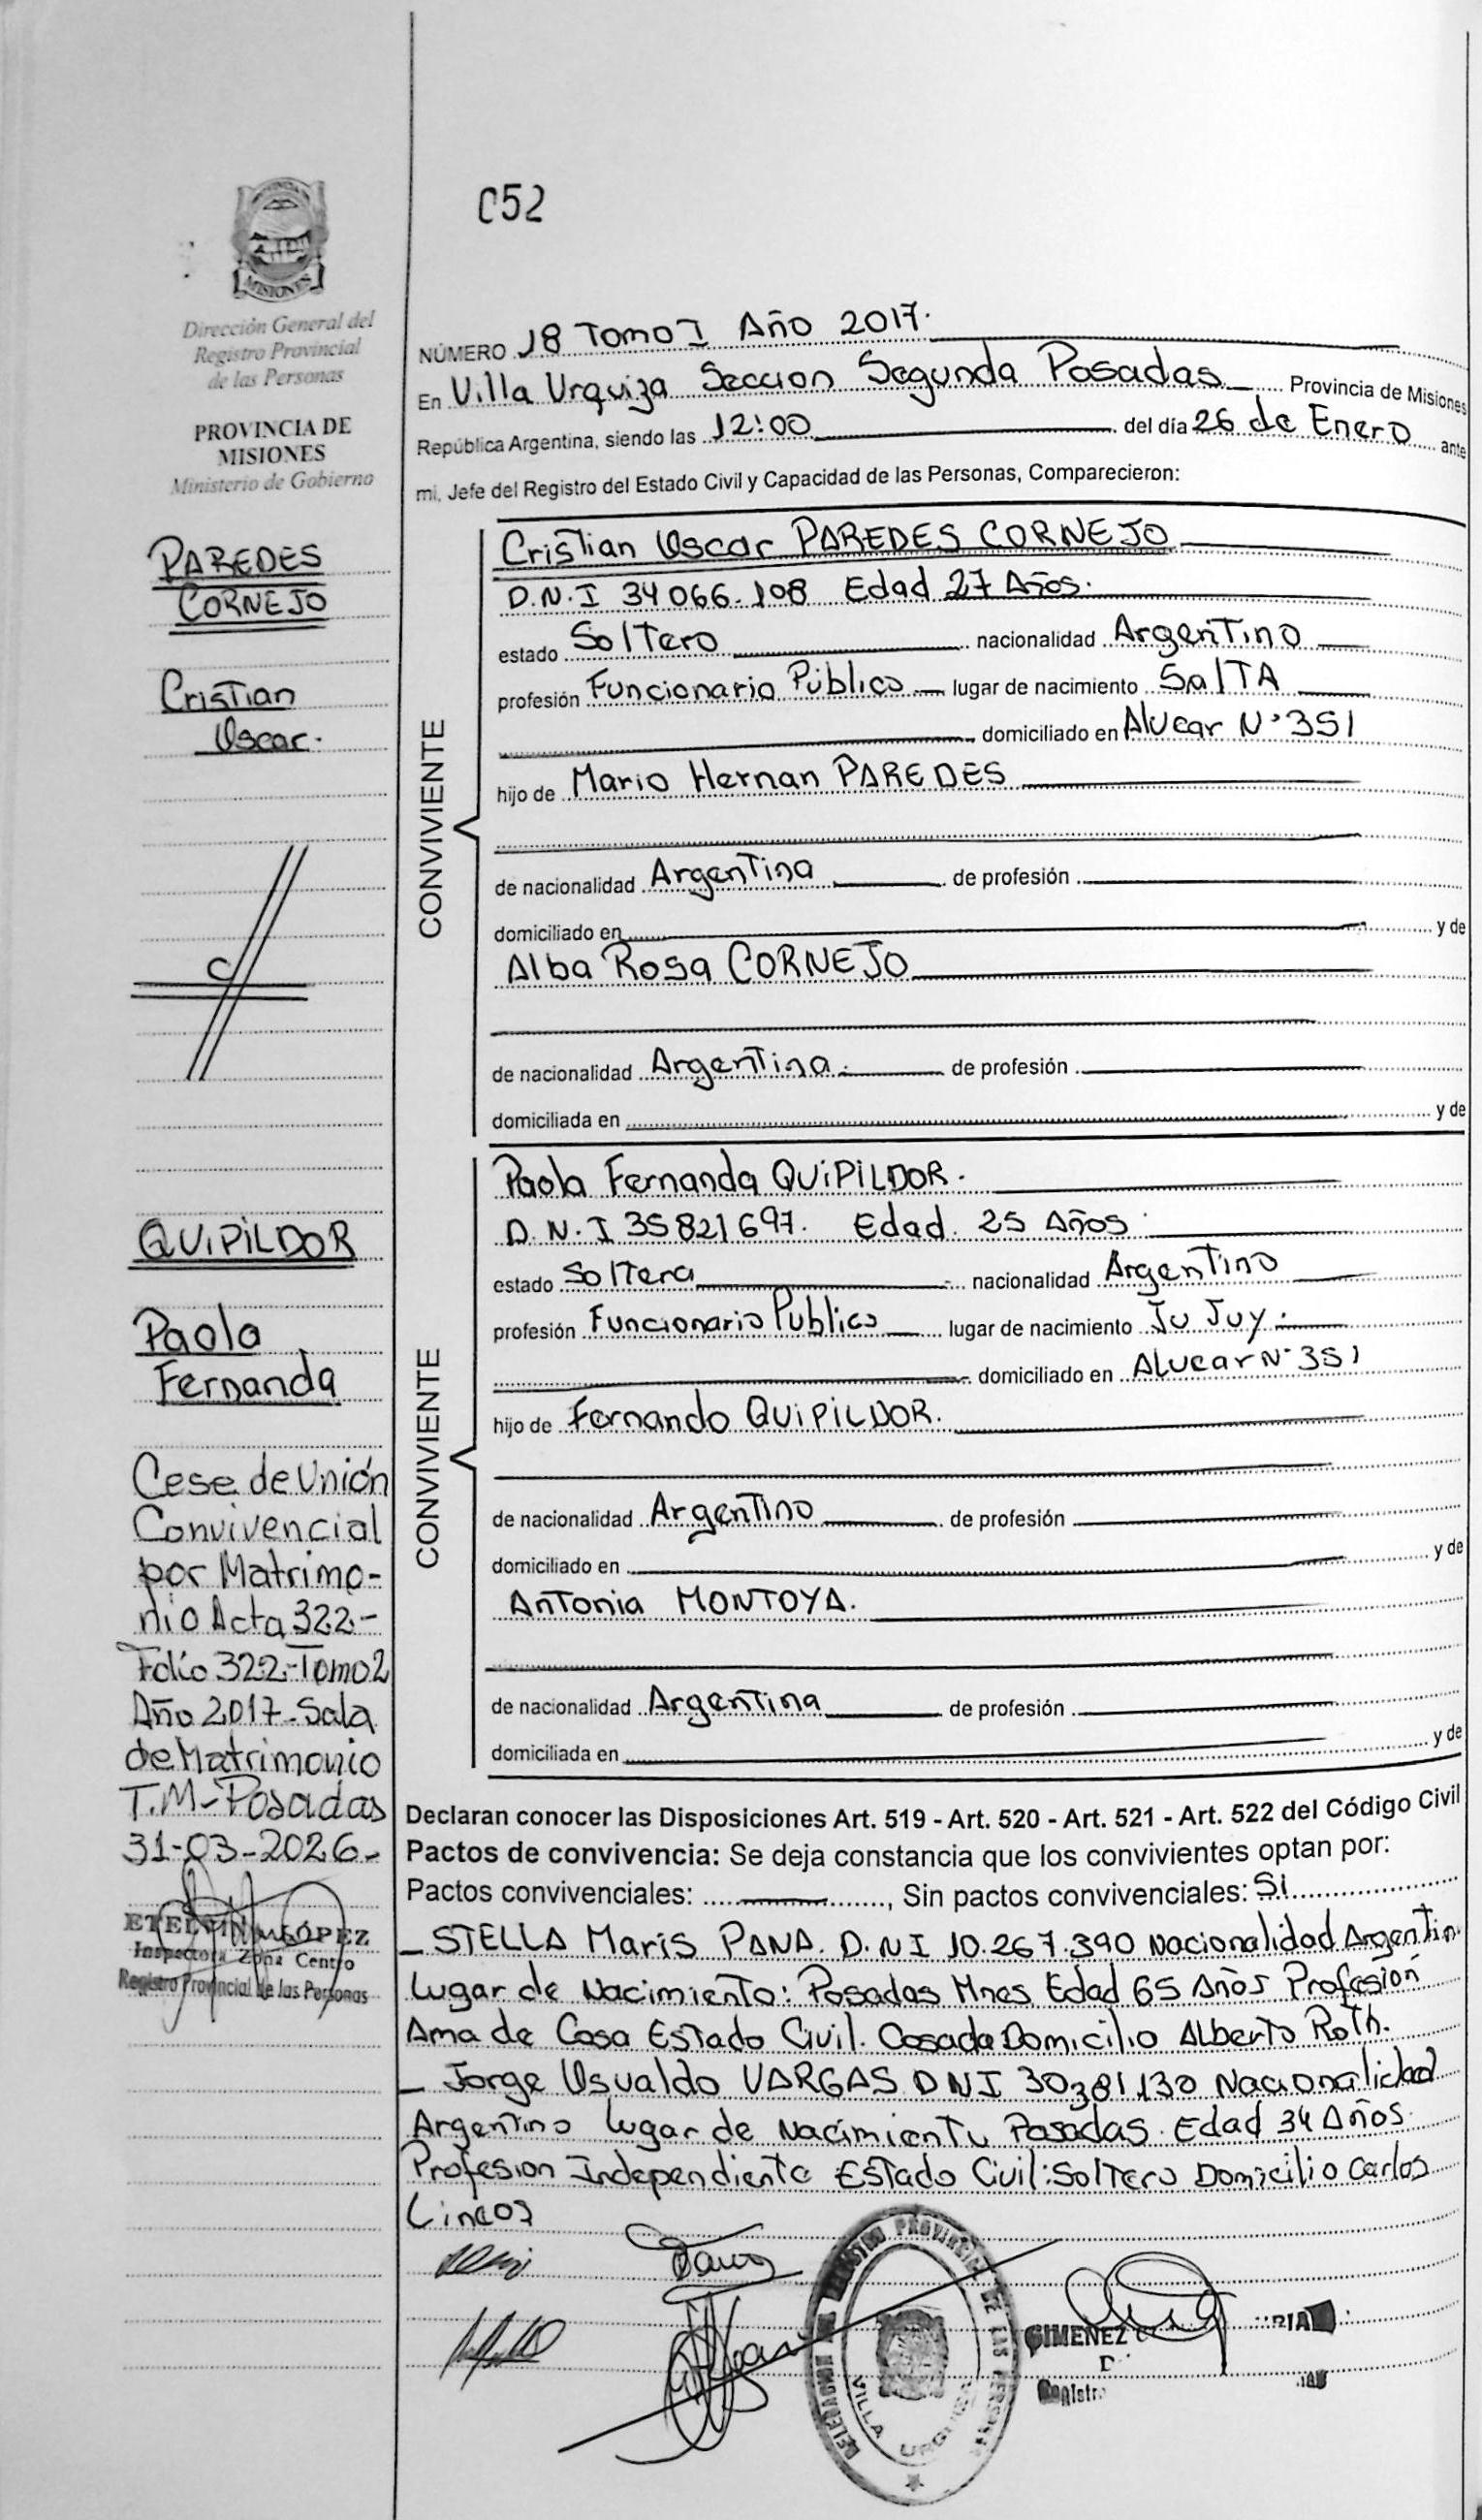 052
MISIONES
Dirección General del
Registro Provincial
de las Personas
PROVINCIA DE
MISIONES
Ministerio de Gobierno
PAREDES
CORNEJO
Cristian
Oscar.
QUIPILDOR
Paola
Fernanda
Cese de Unión
Convivencial
por Matrimo-
nio Acta 322-
Folio 322-Tomo2
Año 2017-Sala
de Matrimonio
T.M-Posadas
31-03-2026-
LÓPEZ
Inspectora Zona Centro
Registro Provincial de las Personas
NÚMERO 18 Tomo I Año 2017.
En Villa Urquiza Seccion Segunda Posadas Provincia de Misiones
República Argentina, siendo las 12:00 del día 26 de Enero ante
mi, Jefe del Registro del Estado Civil y Capacidad de las Personas, Comparecieron:
CONVIVIENTE
Cristian Oscar PAREDES CORNEJO
D.N.I 34066.108 Edad 27 Años.
estado Soltero nacionalidad Argentino
profesión Funcionario Público lugar de nacimiento Salta
domiciliado en Alvear N° 351
hijo de Mario Hernan PAREDES
de nacionalidad Argentina de profesión
domiciliado en y de
Alba Rosa CORNEJO
de nacionalidad Argentina. de profesión
domiciliada en y de
CONVIVIENTE
Paola Fernanda QUIPILDOR.
D.N.I 35821697. Edad. 25 Años.
estado Soltera nacionalidad Argentino
profesión Funcionario Publico lugar de nacimiento Ju Juy.
domiciliado en Alvear N° 351
hijo de Fernando QUIPILDOR.
de nacionalidad Argentino de profesión
domiciliado en y de
Antonia MONTOYA.
de nacionalidad Argentina de profesión
domiciliada en y de
Declaran conocer las Disposiciones Art. 519 - Art. 520 - Art. 521 - Art. 522 del Código Civil
Pactos de convivencia: Se deja constancia que los convivientes optan por:
Pactos convivenciales: , Sin pactos convivenciales: SI
_ STELLA Maris PANA. D.N.I 10.267.390 Nacionalidad Argentin
Lugar de Nacimiento: Posadas Mnes Edad 65 Años Profesion
Ama de Casa Estado Civil. Casada Domicilio Alberto Roth.
_ Jorge Osvaldo VARGAS DNI 30381130 Nacionalidad
Argentino lugar de Nacimiento Posadas. Edad 34 Años.
Profesion Independiente Estado Civil: Soltero Domicilio Carlos
VILLA
GIMENEZ